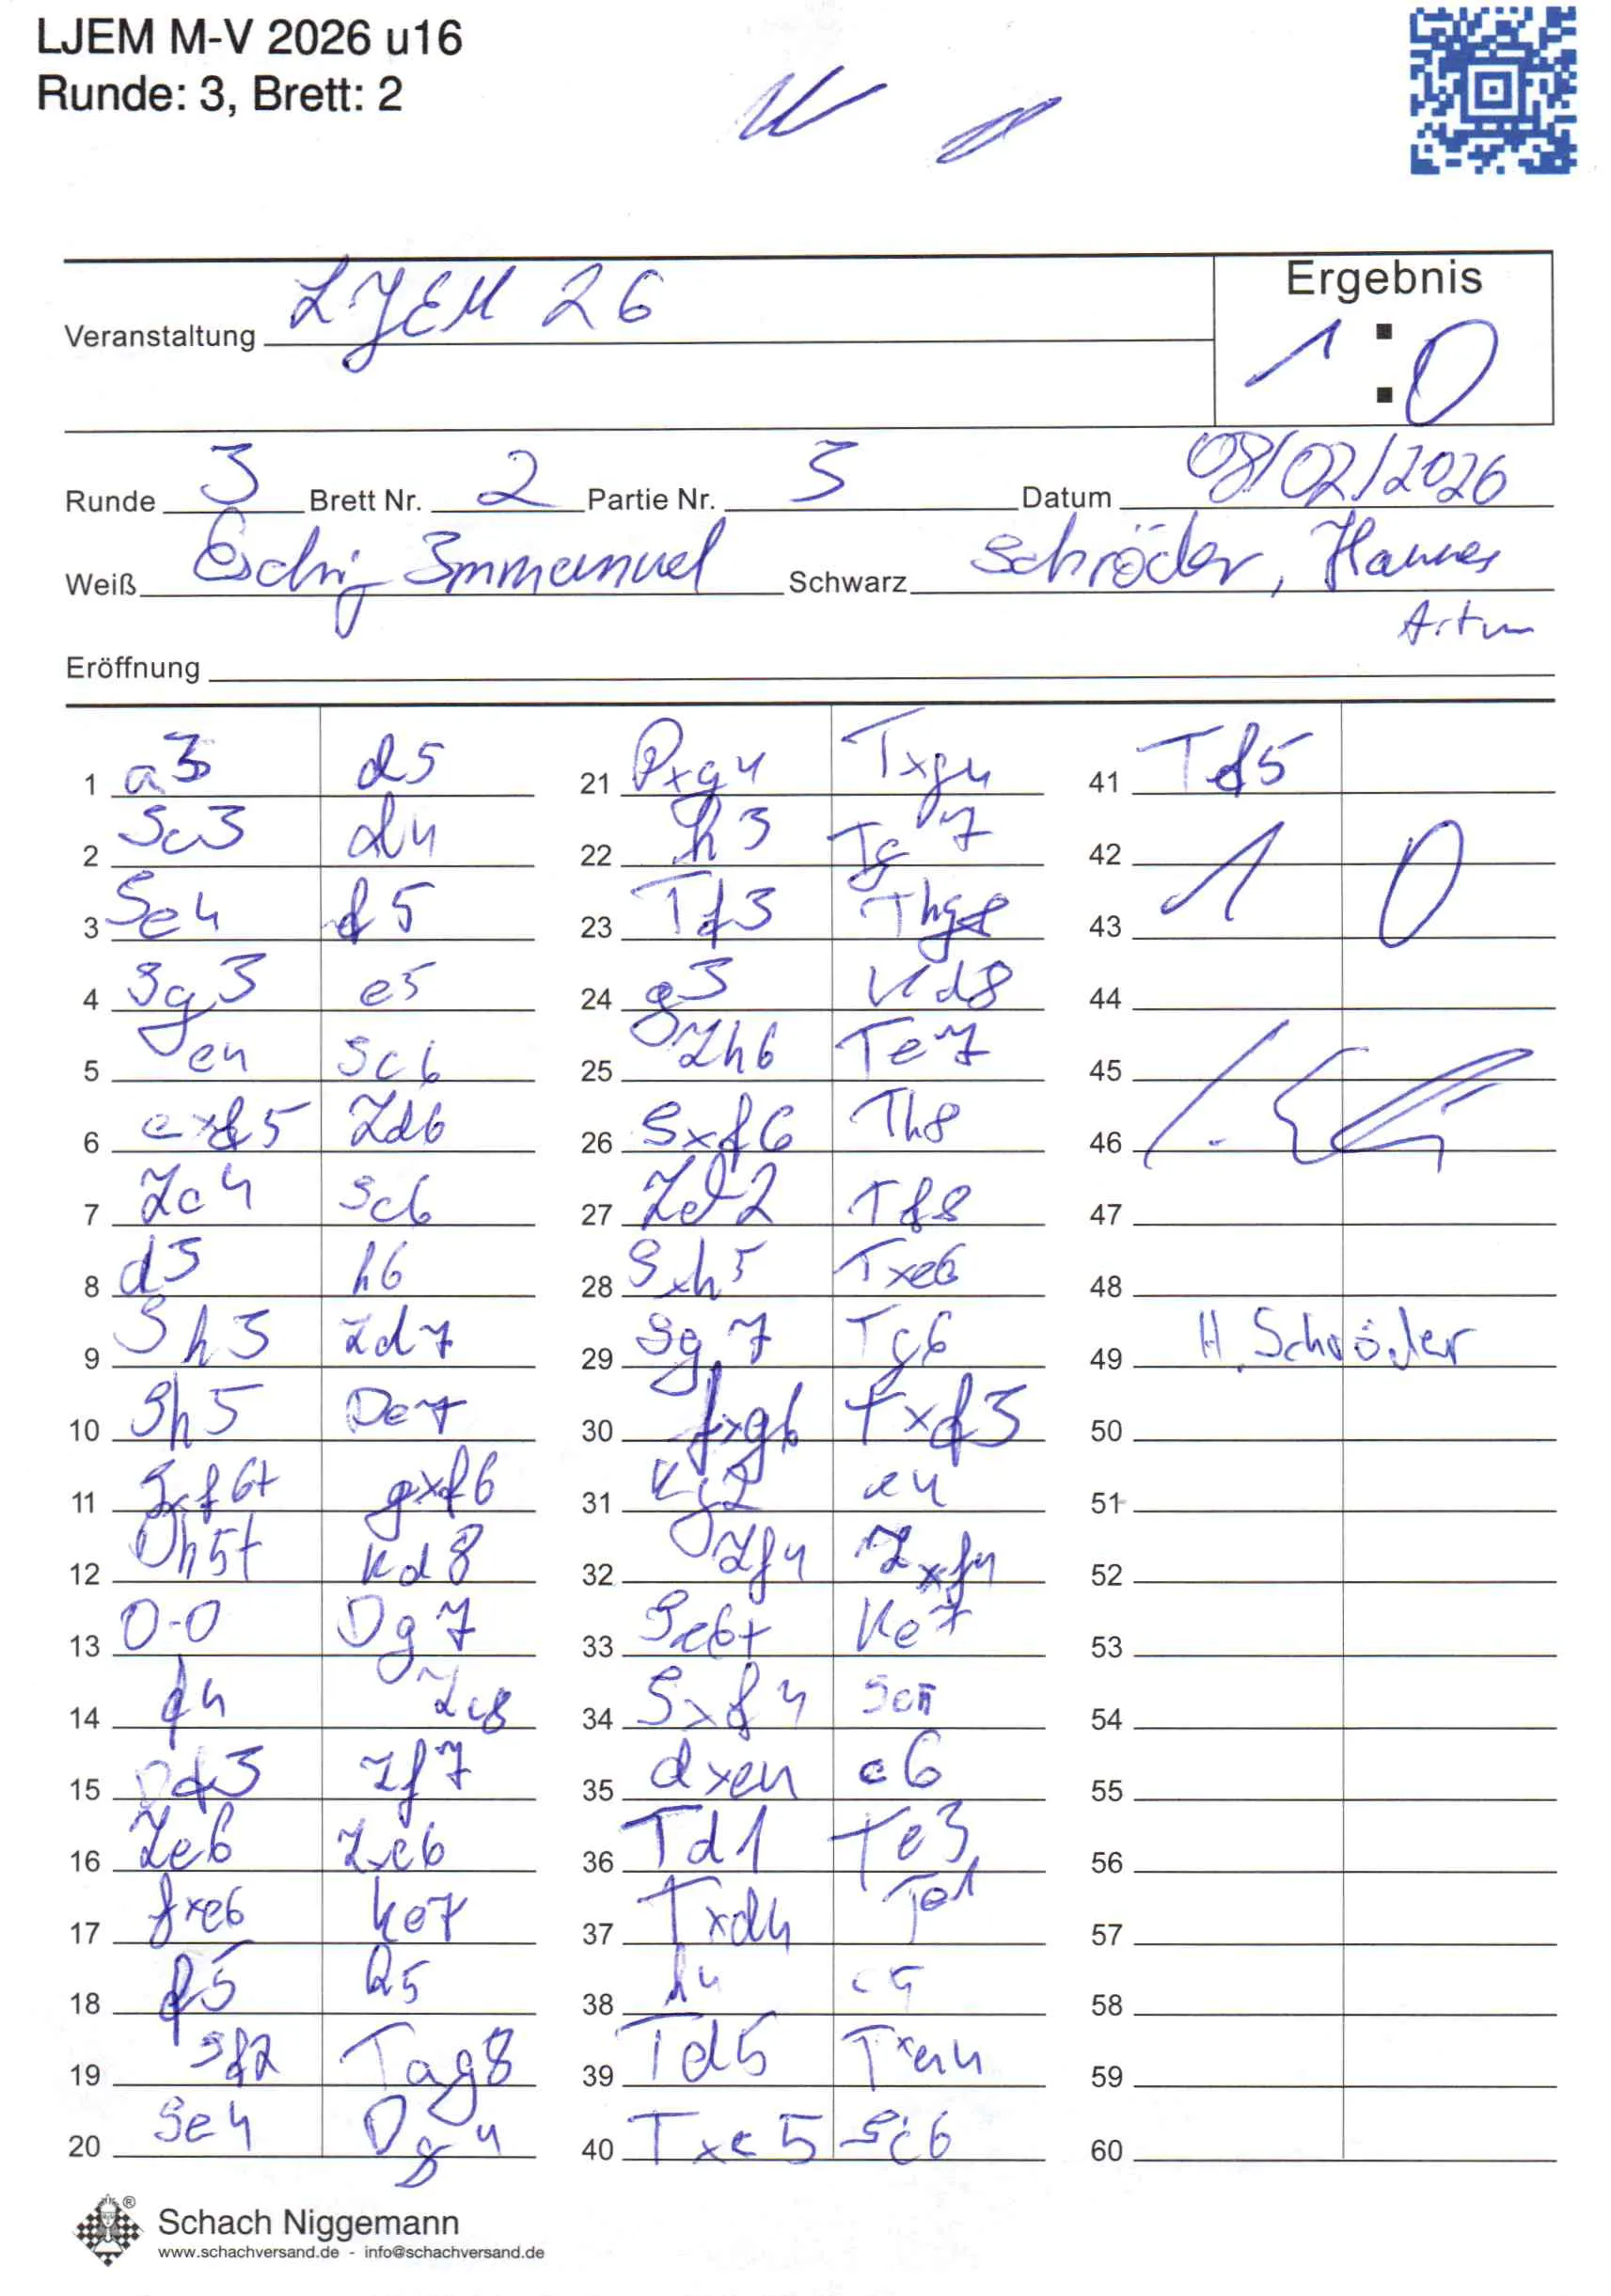 LJEM M-V 2026 u16
Runde: 3, Brett: 2
Veranstaltung LJEM 26
Ergebnis
1 : 0
Runde 3 Brett Nr. 2 Partie Nr. 3 Datum 08/02/2026
Weiß Eschig Immanuel Schwarz Schröder, Hannes
Artur
Eröffnung
1 a3 d5 21 Dxg4 Txg4 41 Tf5
2 Sc3 d4 22 h3 Tg7 42 1 0
3 Se4 f5 23 Tf3 Thg8 43
4 Sg3 e5 24 g3 Kd8 44
5 e4 Sc6 25 Lh6 Te7 45
6 exf5 Ld6 26 Sxf6 Th8 46
7 Lc4 Sc6 27 Ld2 Tf8 47
8 d3 h6 28 Sxh5 Txe6 48
9 Sh3 Ld7 29 Sg7 Tg6 49 H. Schröder
10 Sh5 De7 30 fxg6 Txf3 50
11 Sxf6+ gxf6 31 Kg2 e4 51
12 Dh5+ Kd8 32 Lf4 Lxf4 52
13 0-0 Dg7 33 Se6+ Ke7 53
14 f4 Le8 34 Sxf4 54
15 Df3 Lf7 35 dxe4 c6 55
16 Le6 Lxe6 36 Td1 Te3 56
17 fxe6 Ke7 37 Txd4 Te1 57
18 f5 h5 38 h4 c5 58
19 Sf2 Tag8 39 Td5 Txe4 59
20 Se4 Dg4 40 Txe5 Sc6 60
®
Schach Niggemann
www.schachversand.de - info@schachversand.de